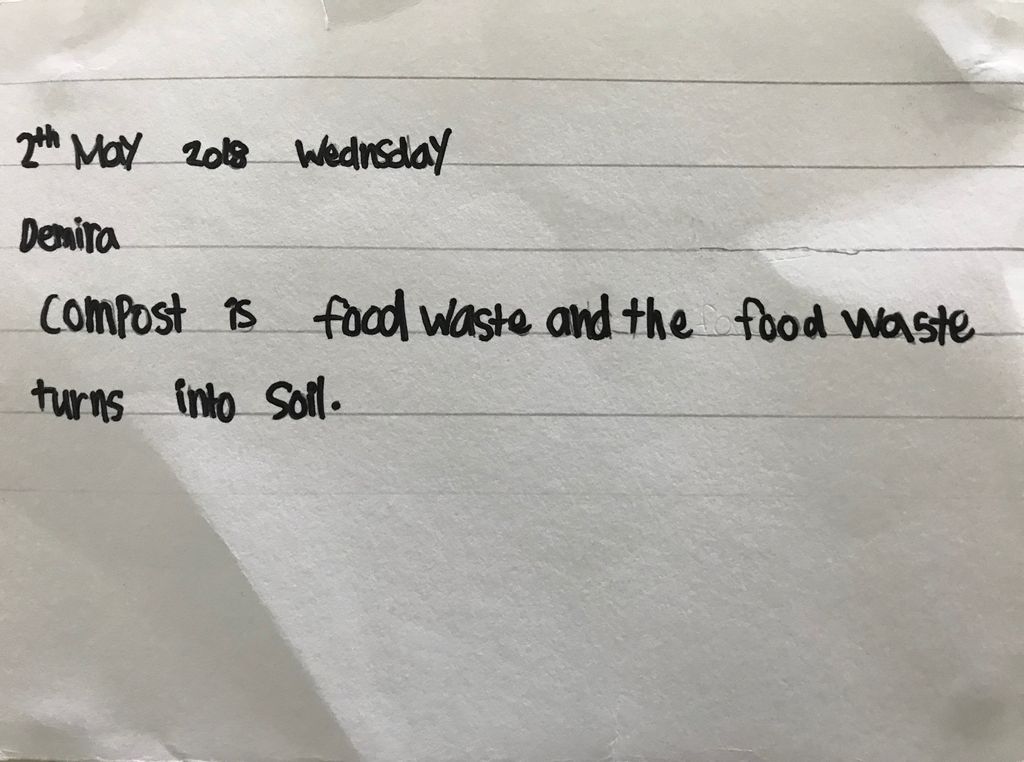 2th May 2018 Wednsday
Demira
Compost is food waste and the food waste
turns into soil.